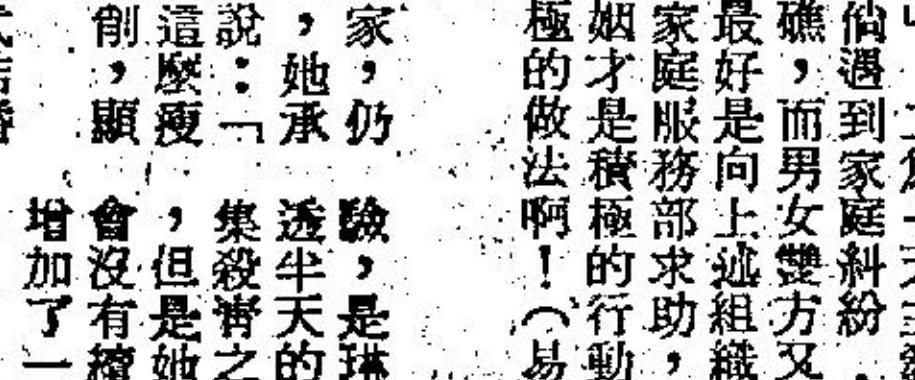 倘遇到家庭糾紛，
礁，而男女雙方又
最好是向上述組織
家庭服務部求助，
姻才是積極的行動
極的做法啊！（易
家，仍
，她承
說：「
這麼瘦
削，顯
驗，是琳
透半天的
集殺之
，但是她
會沒有續
增加了一